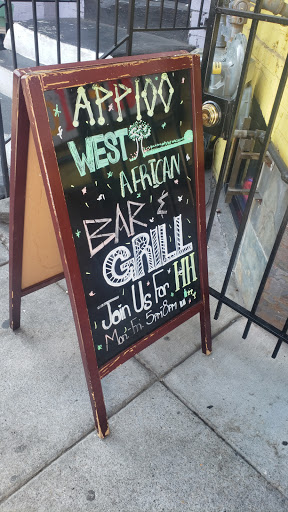 APPIOO
WEST
AFRICAN
BAR &
GRILL
Join Us For HH
Mon-Fri 5pm-8pm